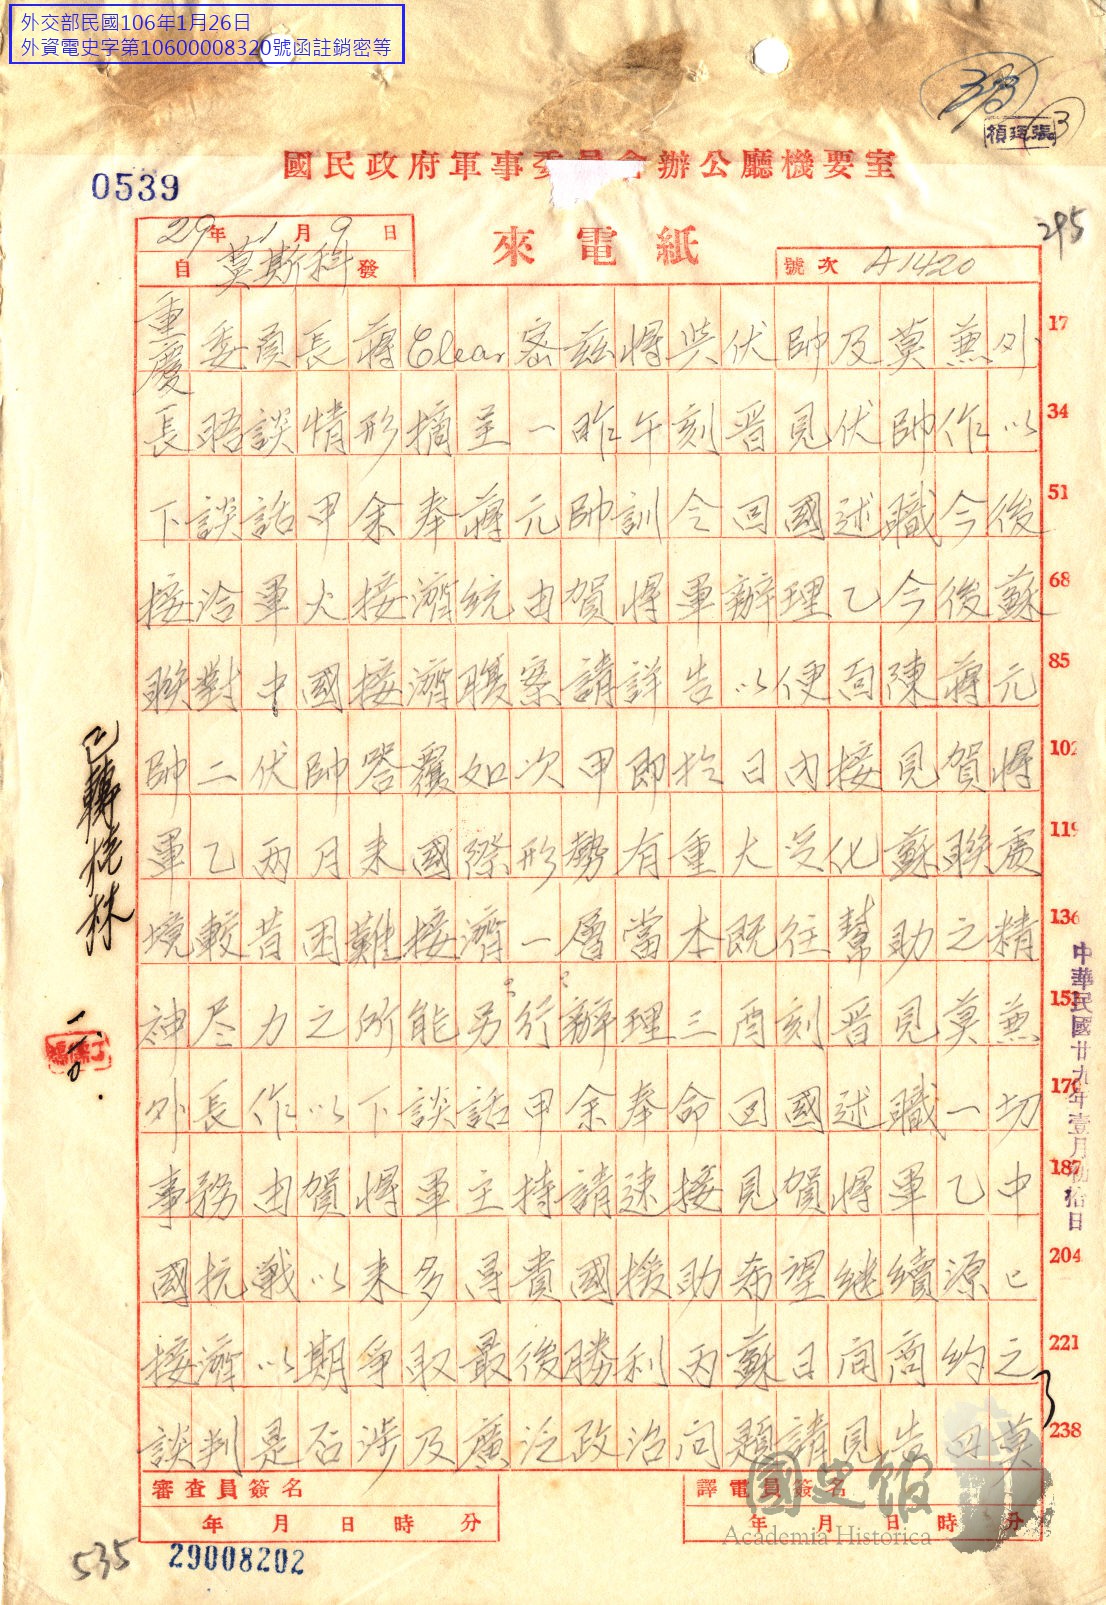 外交部民國106年1月26日
外資電史字第10600008320號函註銷密等
張珮禎
3
國民政府軍事委員會辦公廳機要室
0539
295
來電紙
29年1月9日
自莫斯科發
號次 A1420
重慶委員長蔣Clear密茲將與伏帥及莫兼外
17
長晤談情形摘呈一昨午刻晋見伏帥作以
34
下談話甲余奉蔣元帥訓令回國述職今後
51
接洽軍火接濟統由賀將軍辦理乙今後蘇
68
聯對中國接濟腹案請詳告以便面陳蔣元
85
帥二伏帥答覆如次甲即於日內接見賀將
102
軍乙兩月來國際形勢有重大变化蘇聯處
119
境較昔困難接濟一層當本既往幫助之精
136
神尽力之所能另行辦理三酉刻晋見莫兼
153
外長作以下談話甲余奉命回國述職一切
170
事務由賀將軍主持請速接見賀將軍乙中
187
國抗戰以來多得貴國援助希望継續源〻
204
接濟以期爭取最後勝利丙蘇日間商約之
221
談判是否涉及廣泛政治问題請見告四莫
238
已轉桃林
一.十.
中華民國廿九年壹月初拾日
審查員簽名
年 月 日 時 分
譯電員簽名
年 月 日 時 分
國史館
Academia Historica
535
29008202